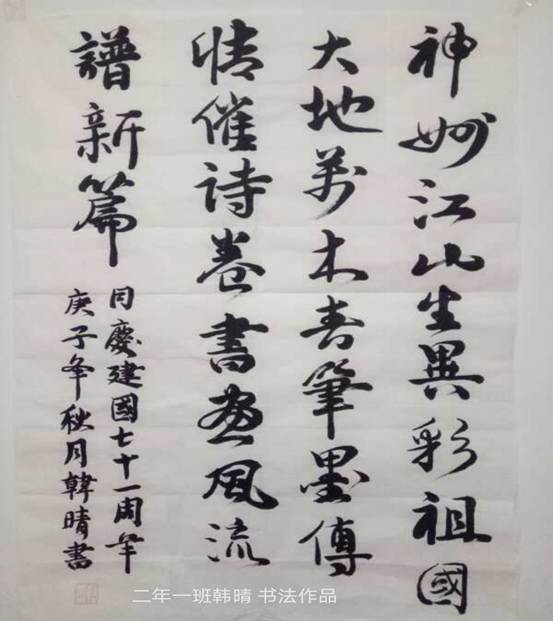 神妙江山生異彩祖國
大地萬木春筆墨傳
情催诗卷書畫風流
譜新篇
同慶建國七十一周年
庚子年秋月韓晴書
二年一班韩晴 书法作品